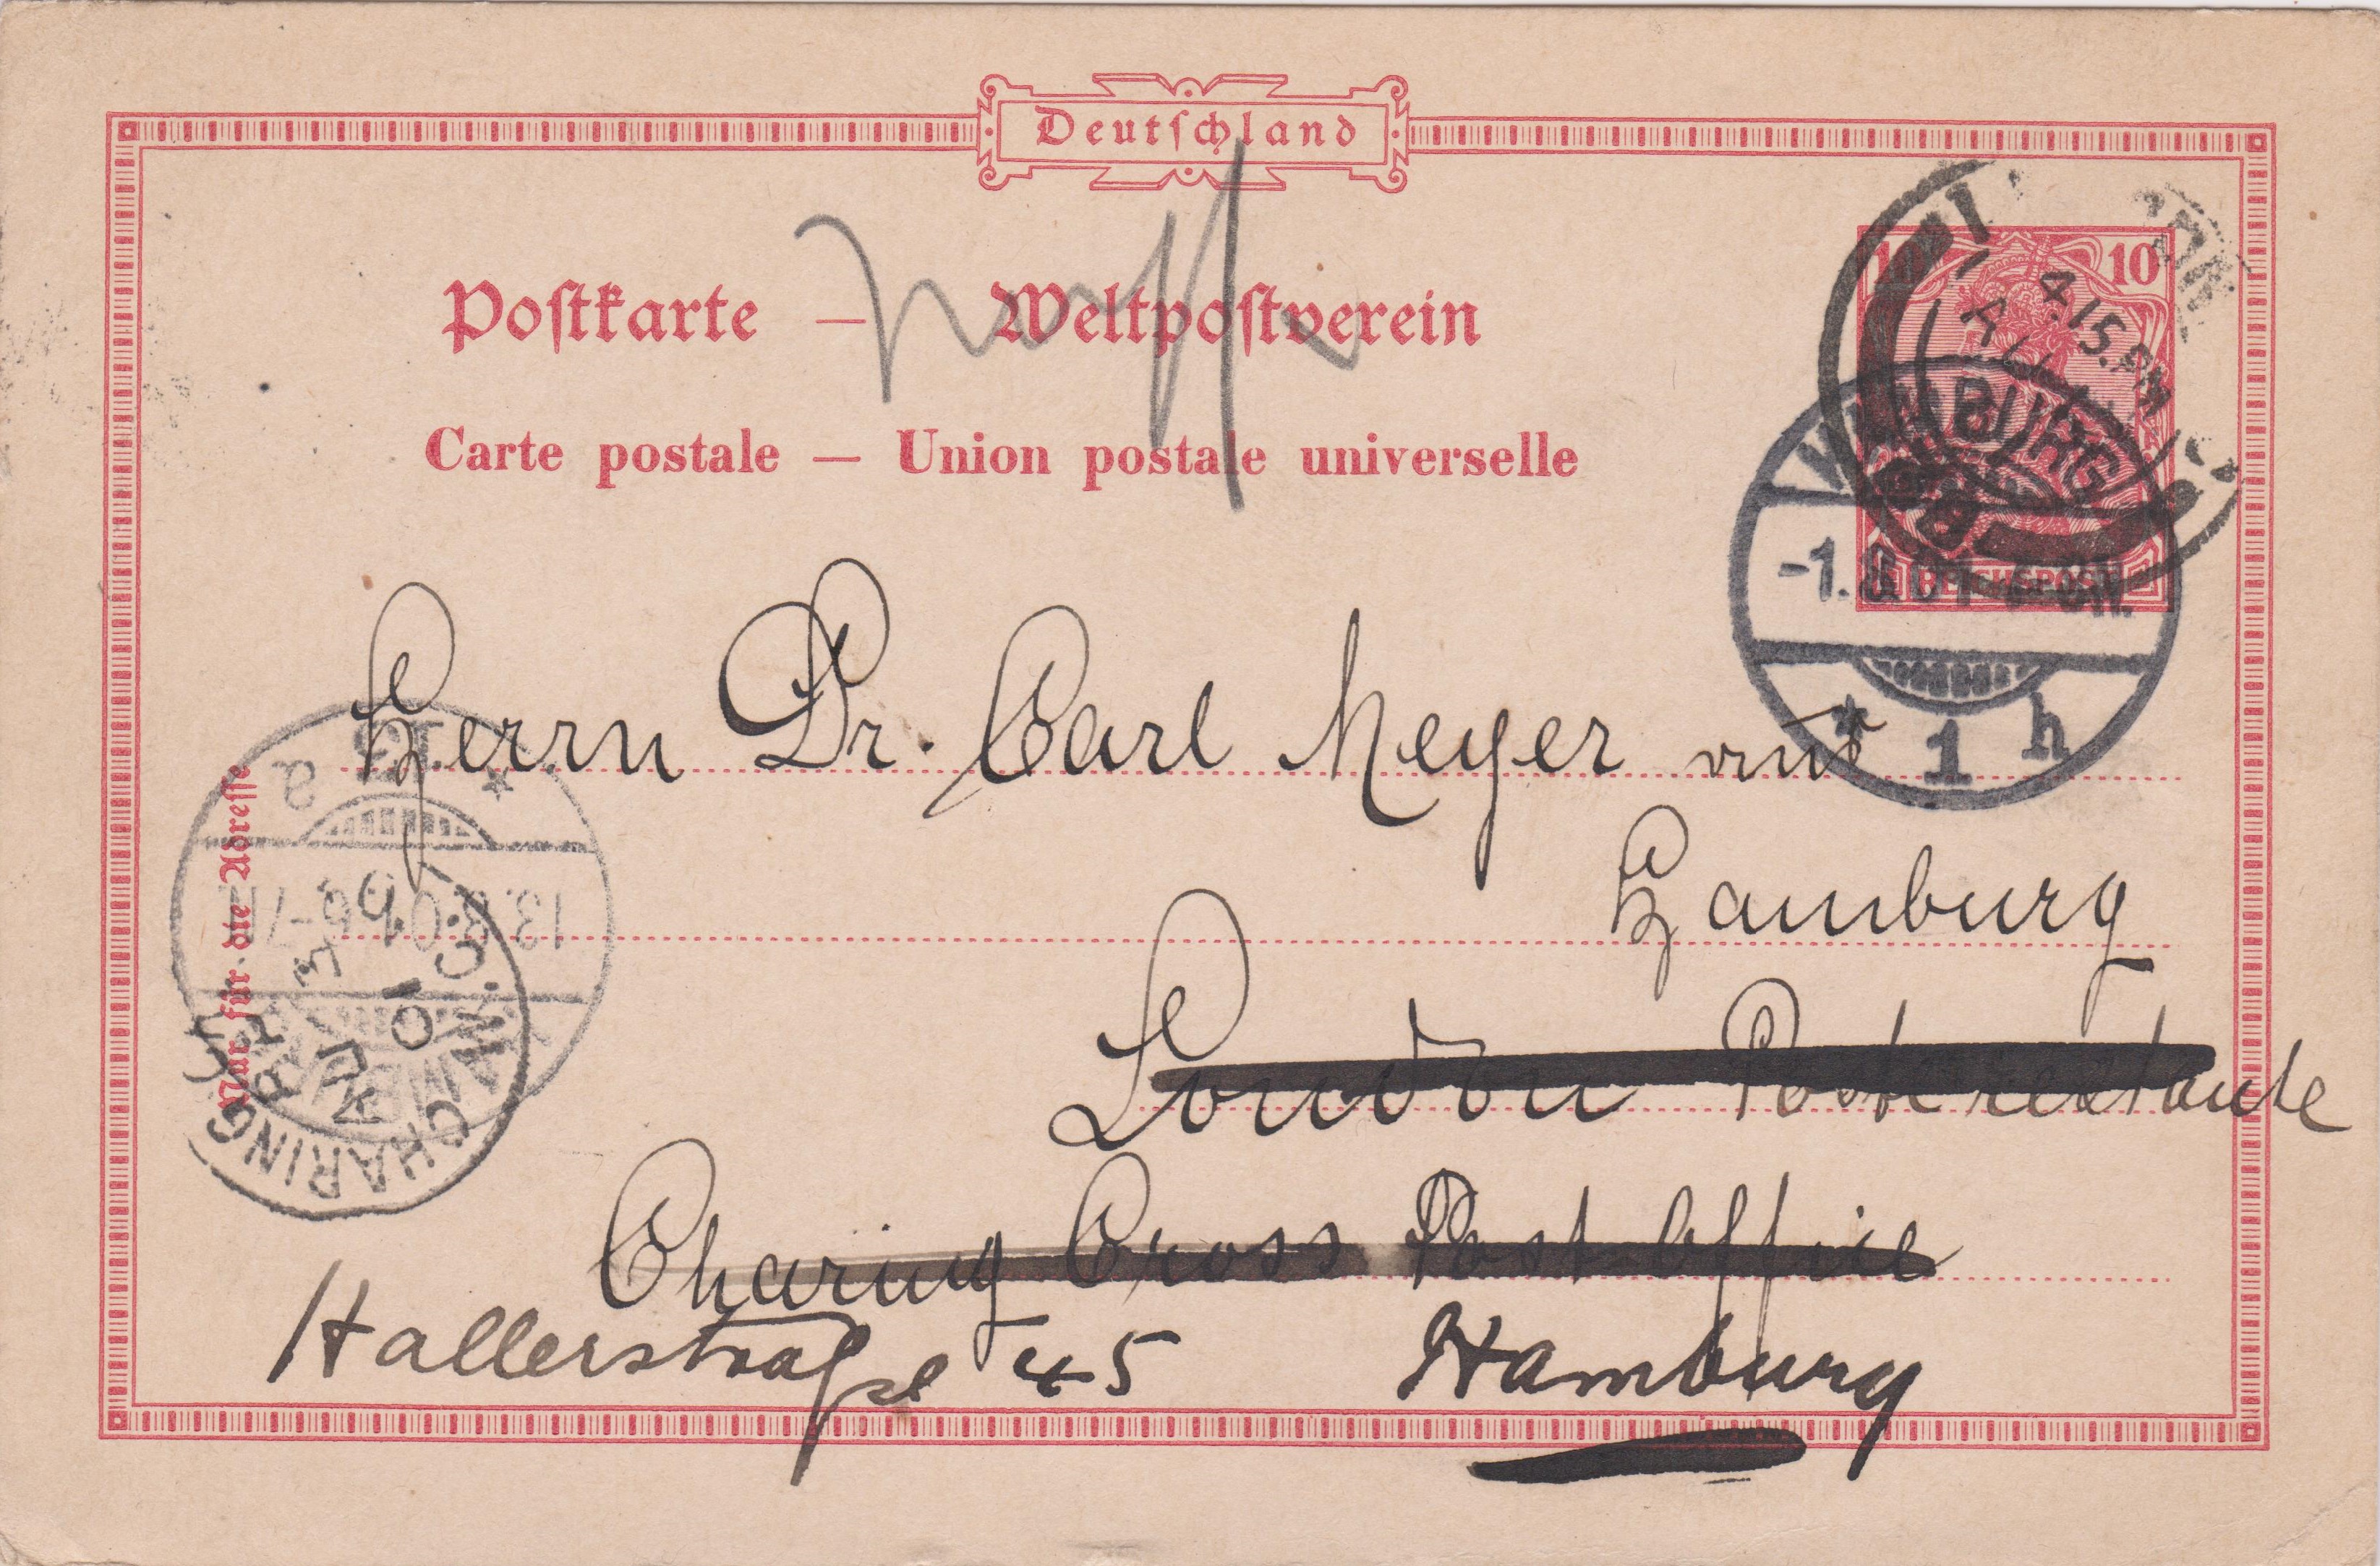 Deutschland
Postkarte — Weltpostverein
Carte postale — Union postale universelle
10 10
REICHSPOST
4.15.PM
AU
HAMBURG
-1.8.01
* 1 h
Herrn Dr. Carl Meyer aus
Hamburg
London Poste restante
Charing Cross Post Office
Hallerstraße 45 Hamburg
Nur für die Adresse
* a
13.8.01 6-7
HAMBURG
CHARING
W.C.
AU 01